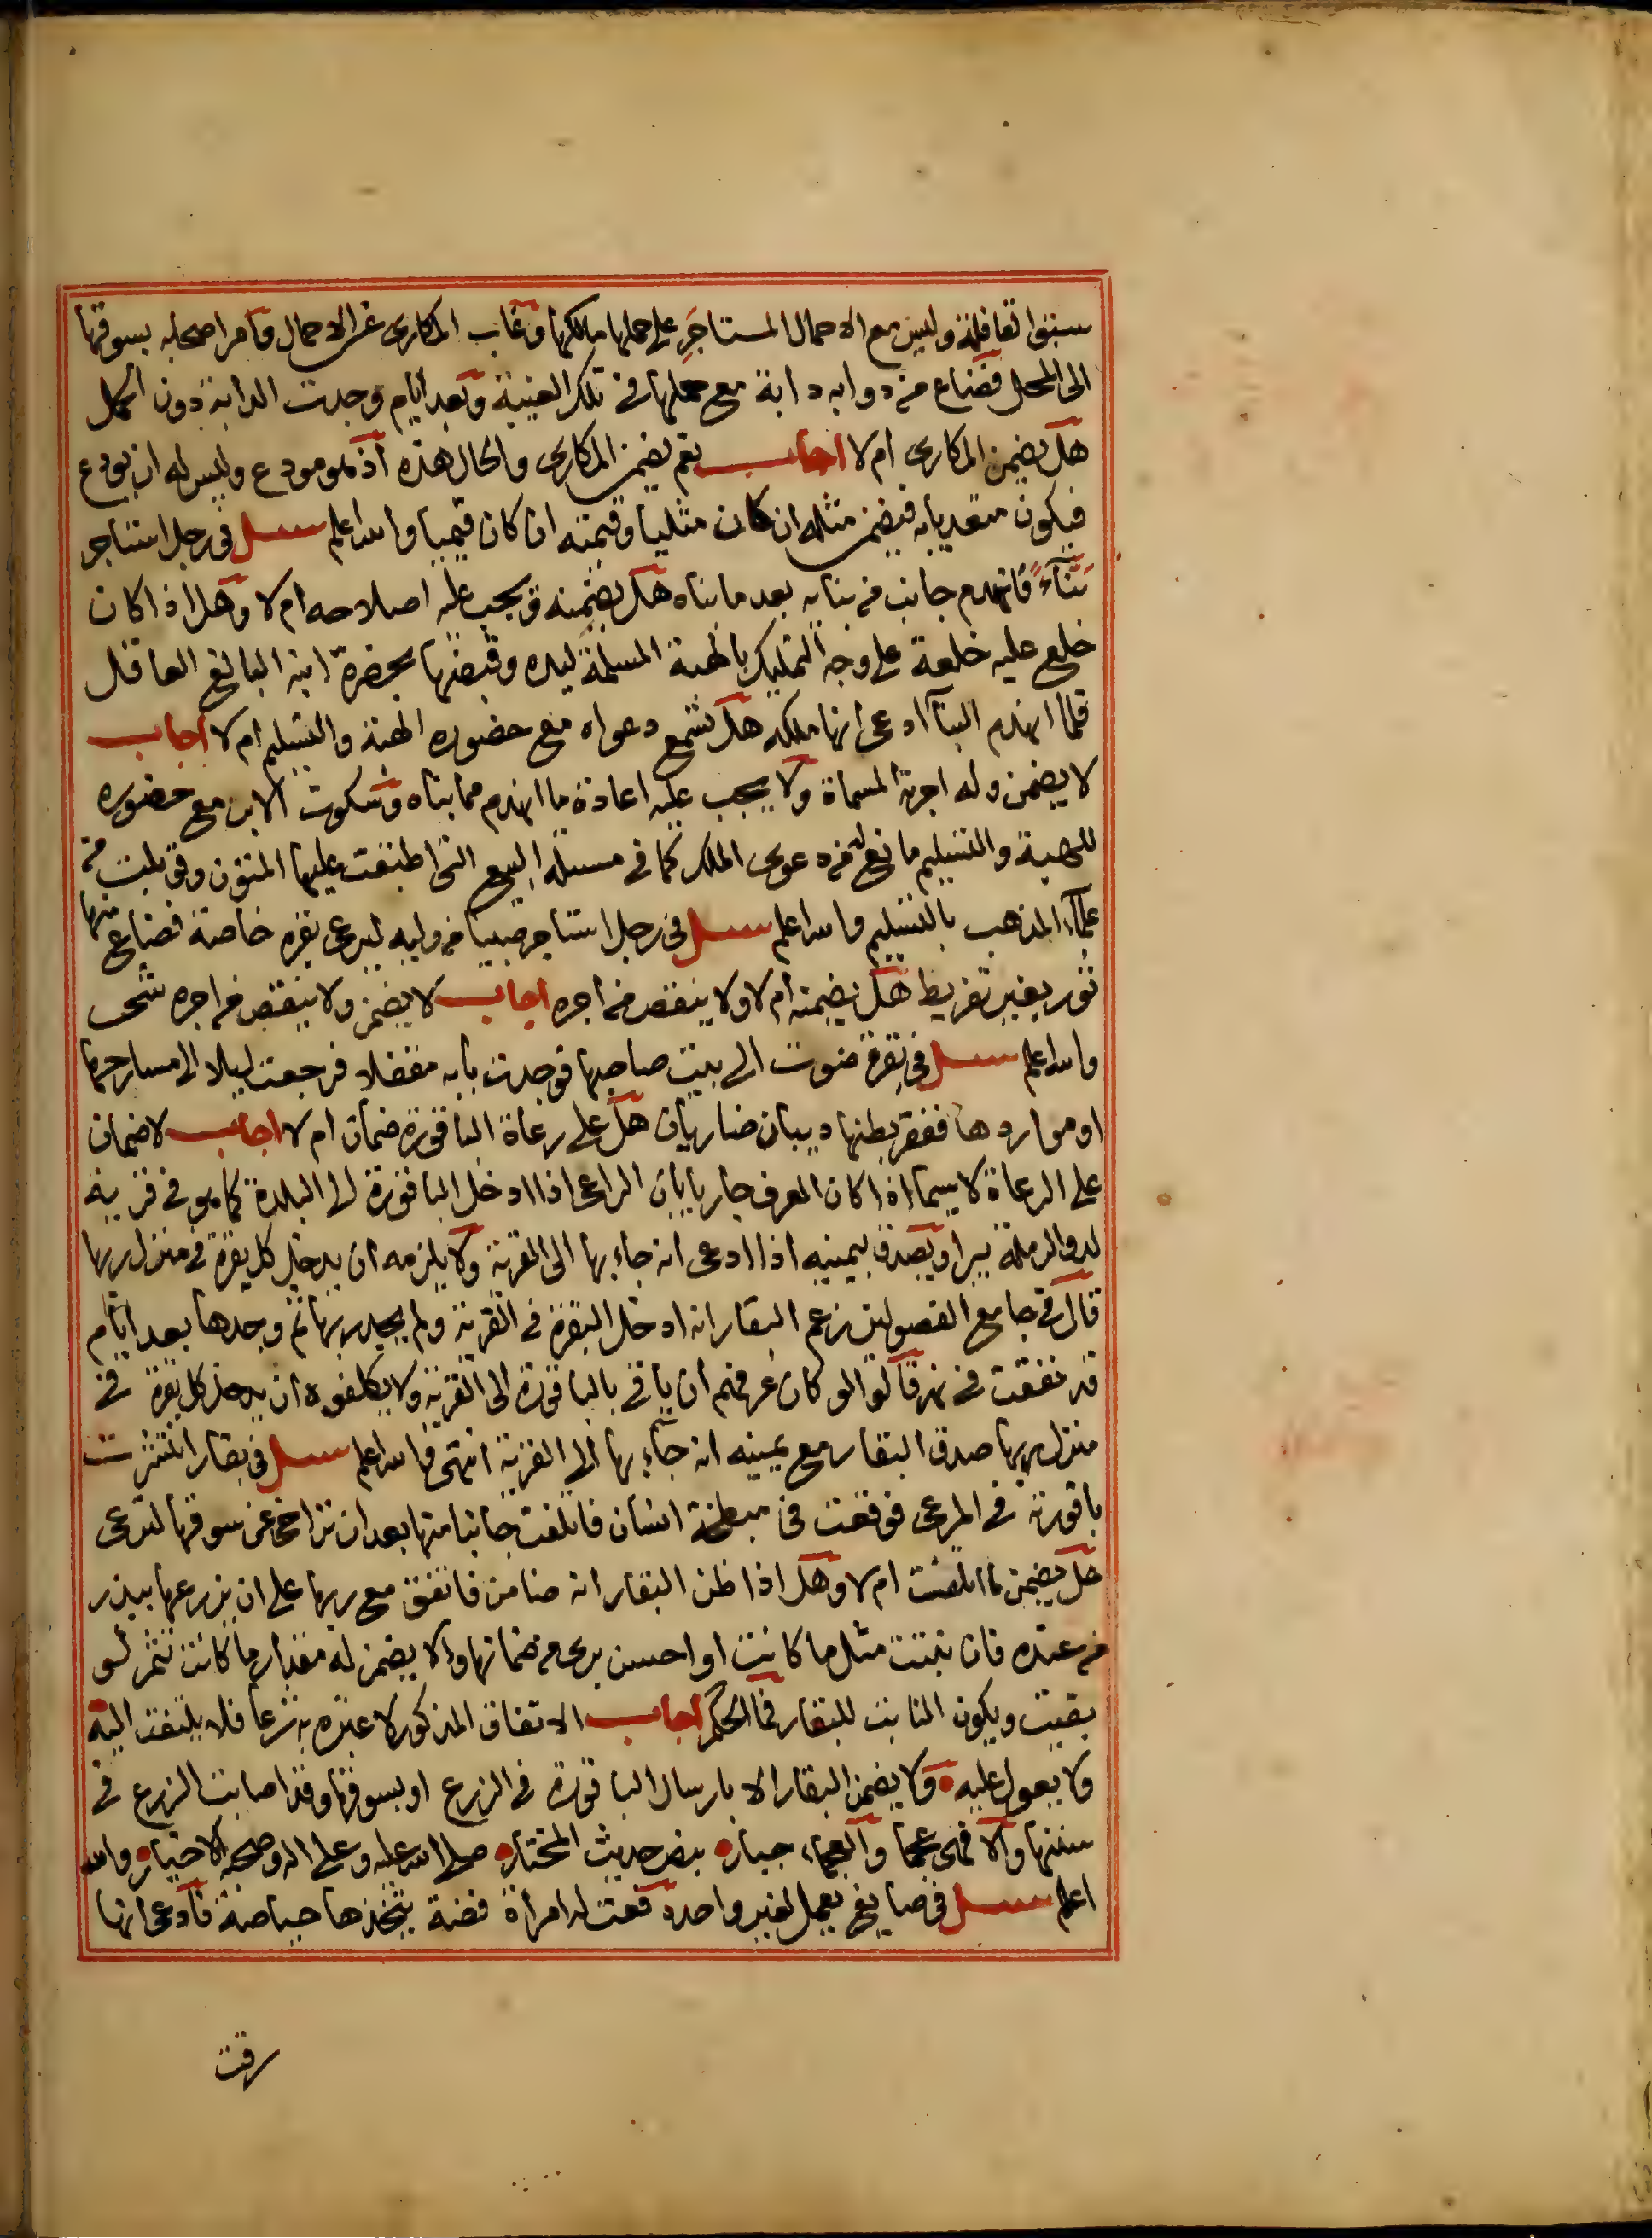 سبقوا القافلة وليس مع الاحمال المستاجر على حملها مالكها وغاب المكارى عن الاحمال وامر اصحابه بسوقها
الى المحل فضاع من دوابه دابة مع حملها في تلك الغيبة وبعد ايام وجدت الدابة دون الحمل
هل يضمن المكارى ام لا اجاب نعم يضمن المكارى والحال هذه اذ هو مودع وليس له ان يودع
فيكون متعديا به فيضمن مثله ان كان مثليا وقيمته ان كان قيميا والله اعلم سئل في رجل استاجر
بَنّآءً فانهدم جانب من بنائه بعد ما بناه هل يضمنه ويجب عليه اصلاحه ام لا وهل اذا كان
خلع عليه خلعة على وجه التمليك بالهبة المسلمة ليده وقبضها بحضرة ابنه البالغ العاقل
فلما انهدم البنآ ادعى انها ملكه هل تسمع دعواه مع حضوره الهبة والتسليم ام لا اجاب
لا يضمن وله اجرته المسماة ولا يجب عليه اعادة ما انهدم مما بناه وسكوت الابن مع حضوره
للهبة والتسليم مانع له من دعوى الملك كما في مسئلة البيع التي اطبقت عليها المتون وقوبلت من
علمآء المذهب بالتسليم والله اعلم سئل في رجل استاجر صبيا من وليه ليرعى بقره خاصة فضاع منها
ثور بغير تفريط هل يضمنه ام لا ولا ينقص من اجره اجاب لا يضمن ولا ينقص من اجره شىء
والله اعلم سئل في بقرة ضوت الى بيت صاحبها فوجدت بابه مقفلا فرجعت ليلا الى مسارحها
او مواردها فعقر بطنها ديبان ضاريان هل على رعاة الباقورة ضمان ام لا اجاب لا ضمان
على الرعاة لا سيما اذا كان العرف جاريا بان الراعى اذا ادخل الباقورة الى البلدة كما هو في قرية
لد والرملة يبرا ويصدق بيمينه اذا ادعى انه جاء بها الى القرية ولا يلزمه ان يدخل كل بقرة في منزل ربها
قال في جامع الفصولين زعم البقار انه ادخل البقرة في القرية ولم يجد ربها ثم وجدها بعد ايام
قد نفقت في نهر قالوا لو كان عرفهم ان ياتي بالباقورة الى القرية ولا يكلفوه ان يدخل كل بقرة في
منزل ربها صدق البقار مع يمينه انه جآء بها الى القرية انتهى والله اعلم سئل في بقار انتشرت
باقورته في المرعى فوقعت في مبطخة انسان فاتلفت جانبا منها بعد ان تراخى عن سوقها لترعى
هل يضمن ما اتلفت ام لا وهل اذا ظن البقار انه ضامن فاتفق مع ربها على ان يزرعها ببذر
من عنده فان نبتت مثل ما كانت او احسن برى من ضمانها والا يضمن له مقدار ما كانت تثمر لو
بقيت ويكون النابت للبقار فما الحكم اجاب الاتفاق المذكور لا عبرة به شرعا فلا يلتفت اليه
ولا يعول عليه ولا يضمن البقار الا بارسال الباقورة في الزرع او بسوقها وقد اصابت الزرع في
سننها والا فهى عجما والعجماء جبار بنص حديث المختار صلى الله عليه وعلى اله وصحبه الاخيار والله
اعلم سئل في صايغ يعمل لغير واحد دفعت له امراة فضة يتخذها حياصة فادعى انها
سرقت